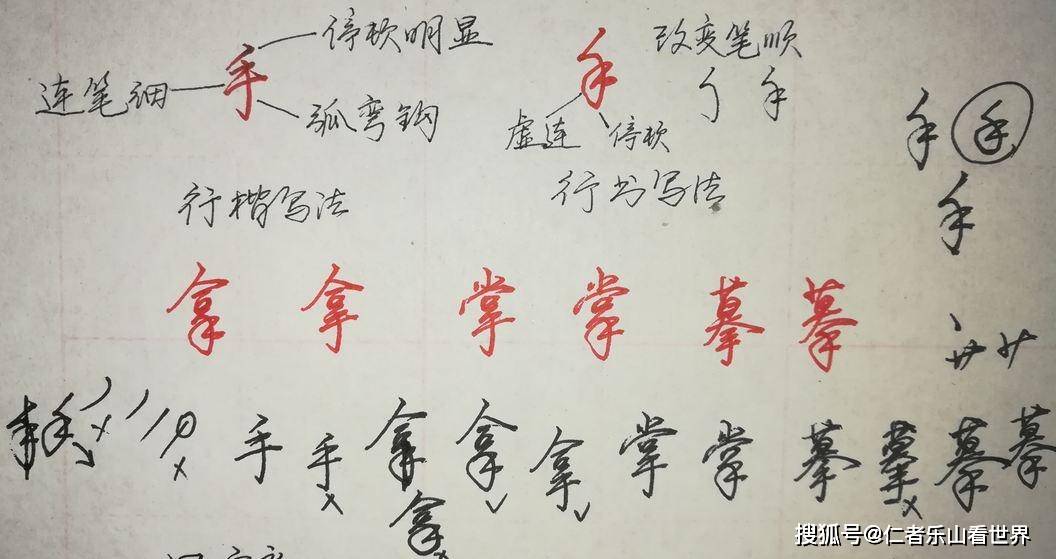 手 停顿明显
连笔细
弧弯钩
行楷写法
手 改变笔顺
手
虚连 停顿
行书写法
手 手
手
拿 拿 掌 掌 摹 摹
手 手 拿 拿 拿 掌 掌 摹 摹 摹 摹
拿
搜狐号@仁者乐山看世界